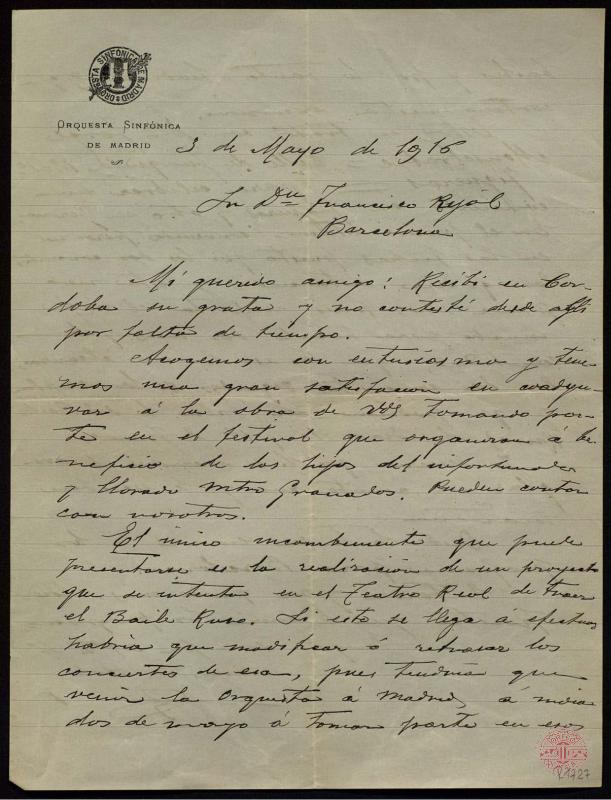 ORQUESTA SINFÓNICA DE MADRID
ORQUESTA SINFÓNICA
DE MADRID
3 de Mayo de 1916
Sr Dn Francisco Pujól
Barcelona
Mi querido amigo: Recibi en Cor-
doba su grata y no contesté desde alli
por falta de tiempo.
Acogemos con entusiasmo y tene-
mos una gran satisfación en coadyu-
var á la obra de Vds tomando par-
te en el festival que organizan á be-
neficio de los hijos del infortunado
y llorado mtro Granados. Pueden contar
con nosotros.
El único incombeniente que puede
presentarse es la realización de un proyecto
que se intenta en el Teatro Real de traer
el Baile Ruso. Si esto se llega á efectuar
habria que modificar ó retrasar los
conciertos de esa, pues tendria que
venir la Orquesta á Madrid, á media
dos de mayo á tomar parte en esos
R1727